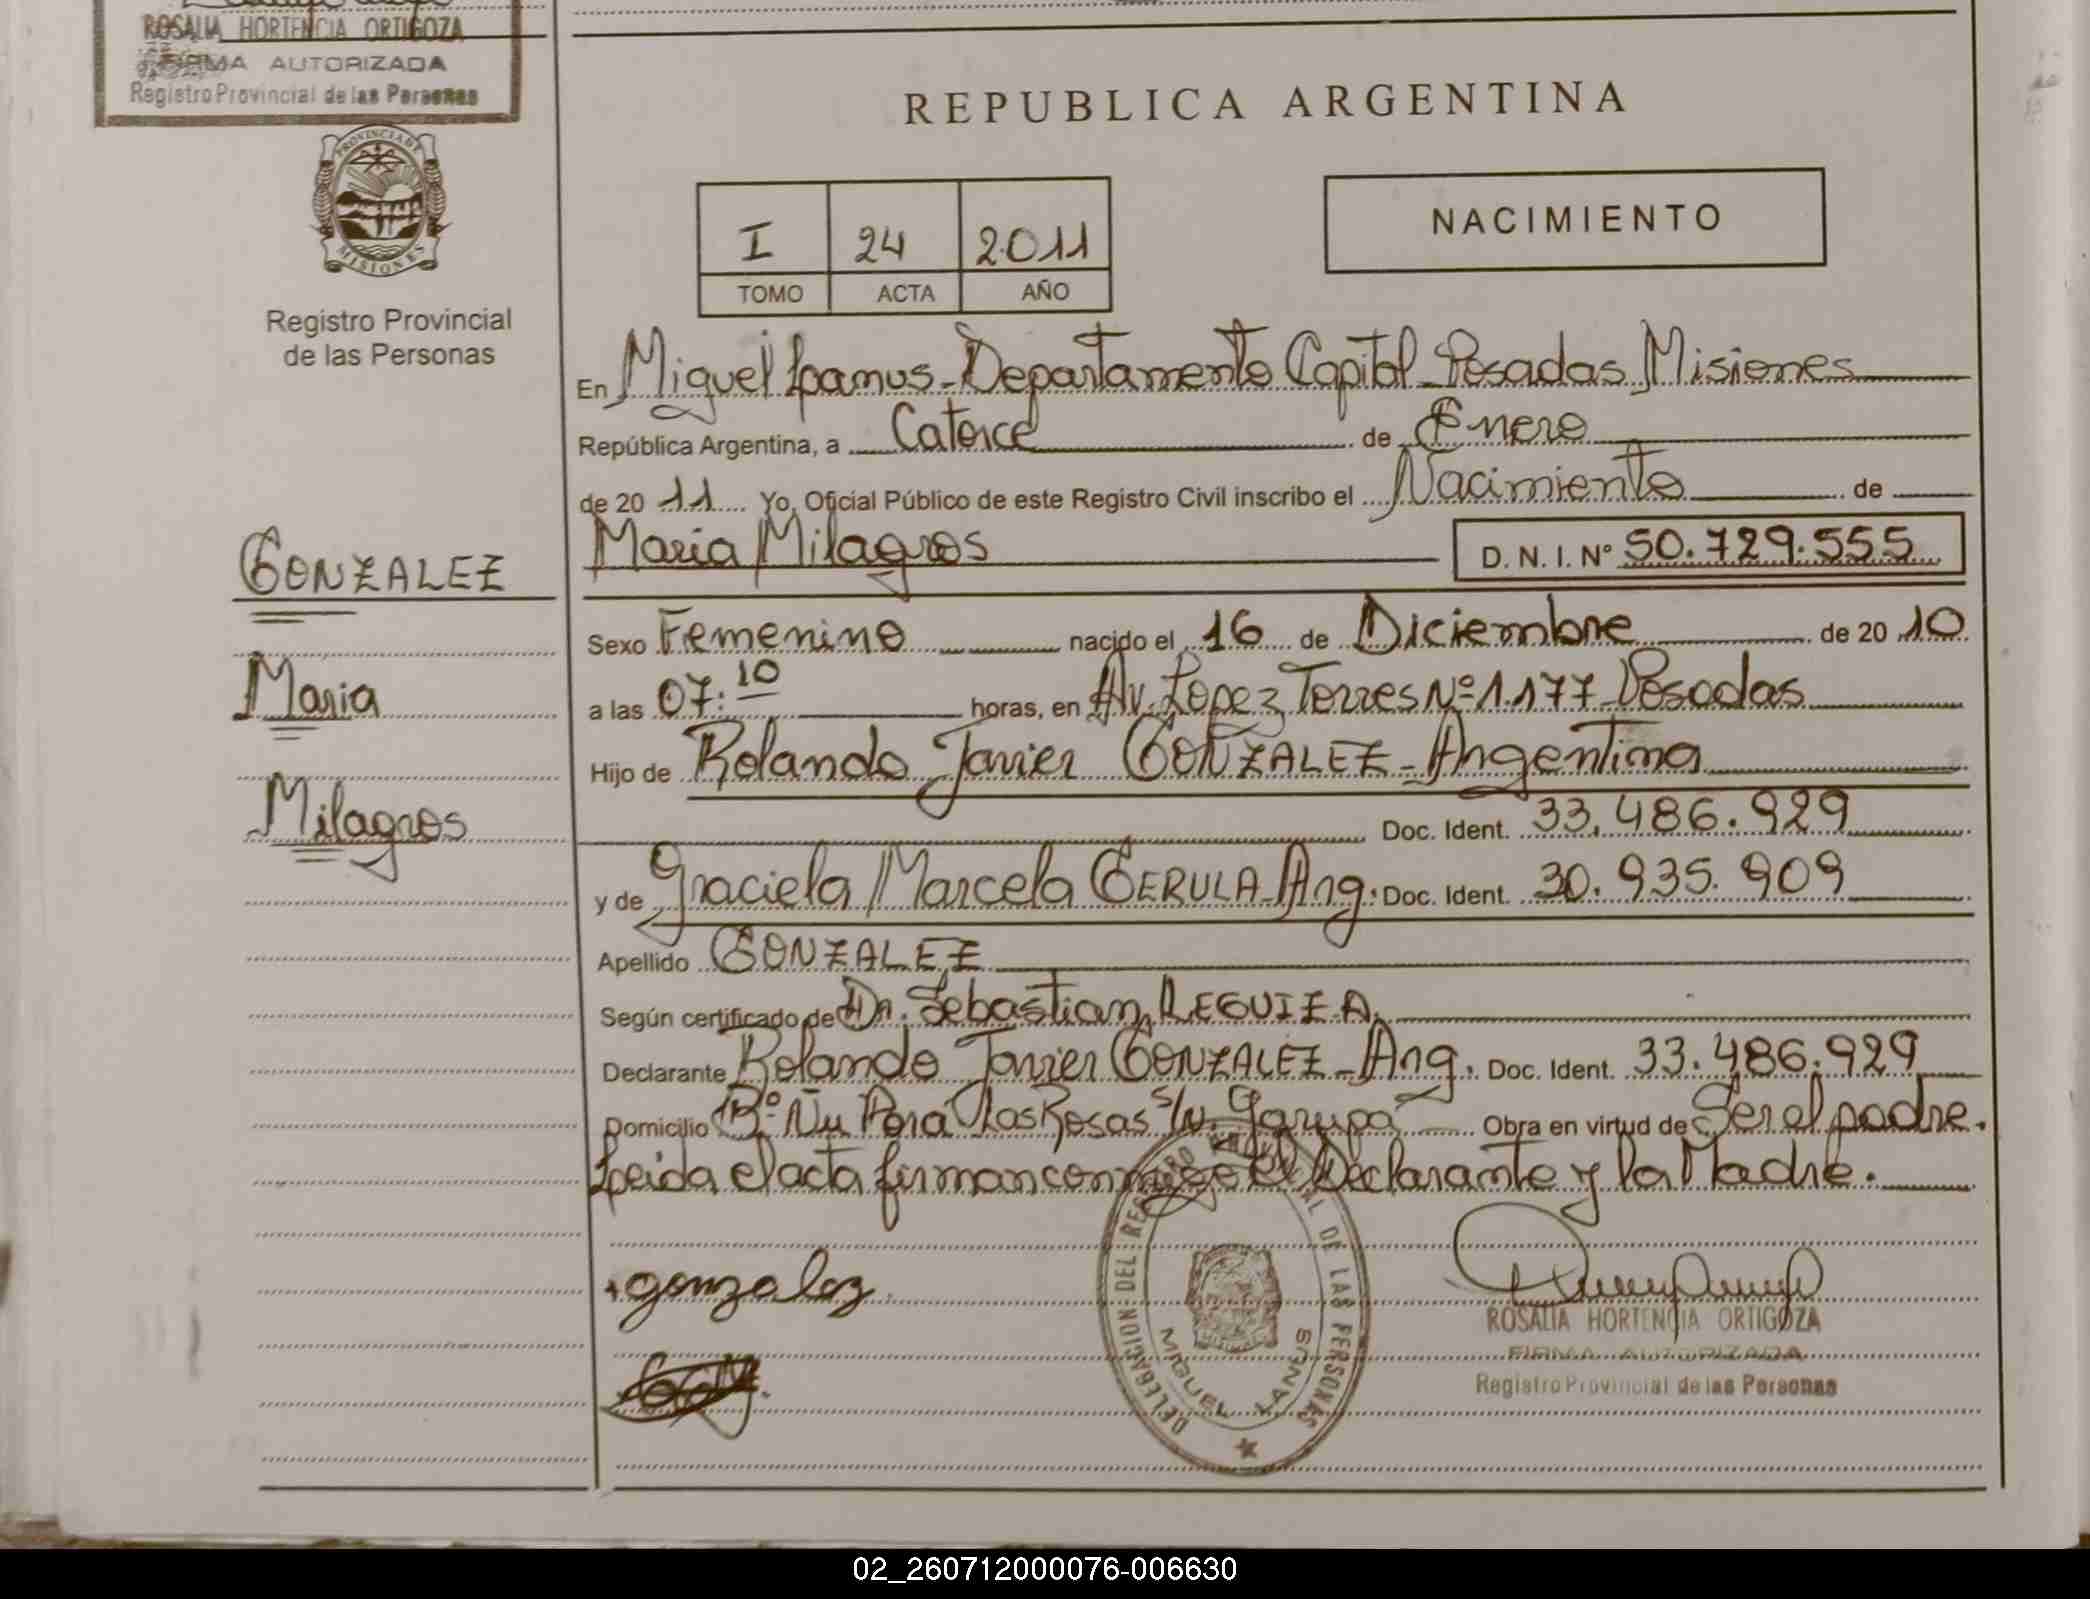 ROSALIA HORTENCIA ORTIGOZA
FIRMA AUTORIZADA
Registro Provincial de las Personas
PROVINCIA DE
MISIONES
Registro Provincial
de las Personas
GONZALEZ
Maria
Milagros
REPUBLICA ARGENTINA
I 24 2011
TOMO ACTA AÑO
NACIMIENTO
En Miguel Lanus - Departamento Capital - Posadas Misiones
República Argentina, a Catorce de Enero
de 20 11 Yo, Oficial Público de este Registro Civil inscribo el Nacimiento de
Maria Milagros D. N. I. Nº 50.729.555
Sexo Femenino nacido el 16 de Diciembre de 20 10
a las 07:10 horas, en Av. Lopez Torres Nº 1.177 - Posadas
Hijo de Rolando Javier GONZALEZ - Argentina
Doc. Ident. 33.486.929
y de Graciela Marcela GERULA - Arg. Doc. Ident. 30.935.909
Apellido GONZALEZ
Según certificado de Dr. Sebastian LEGUIZA.
Declarante Rolando Javier GONZALEZ - Arg. Doc. Ident. 33.486.929
Domicilio Bº Ñu Pora Las Rosas s/n. Garupa Obra en virtud de Ser el padre.
Leida el acta firman conmigo el Declarante y la Madre.
gonzalez
DELEGACION DEL REGISTRO PROVINCIAL DE LAS PERSONAS
MIGUEL LANUS
ROSALIA HORTENCIA ORTIGOZA
FIRMA AUTORIZADA
Registro Provincial de las Personas
02_260712000076-006630